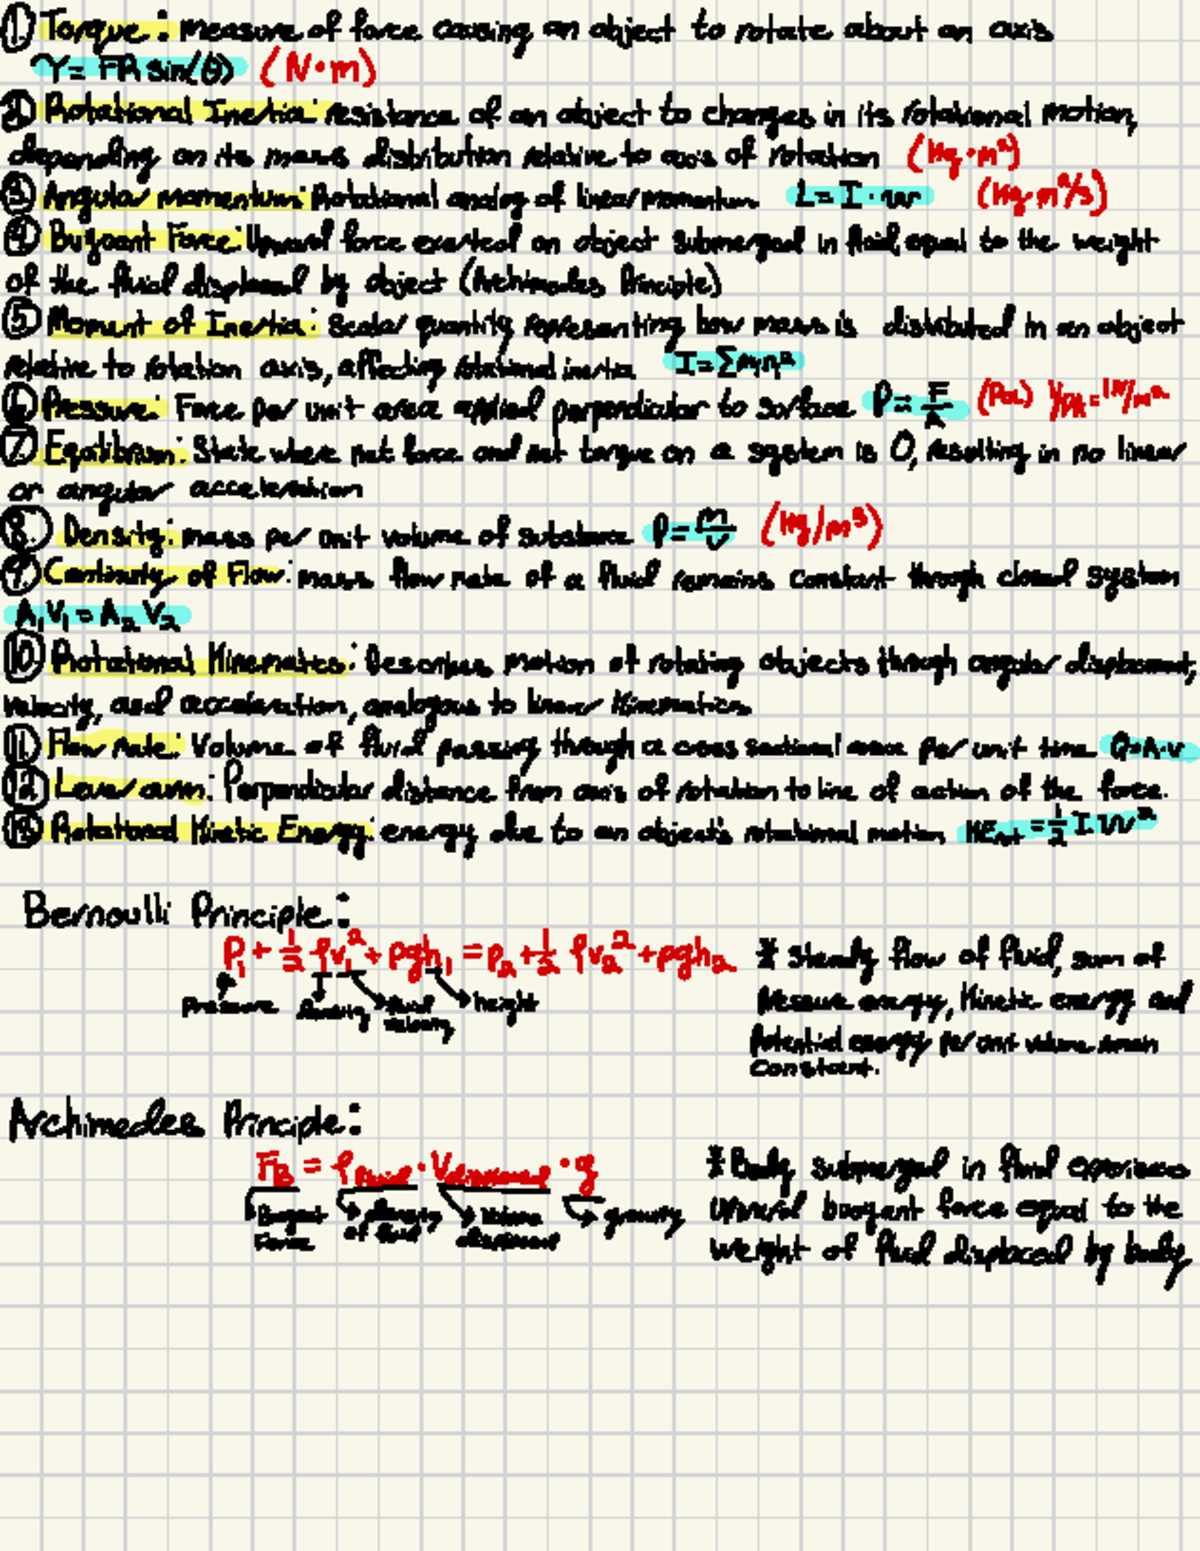 ① Torque: measure of force causing an object to rotate about an axis
τ = FR sin(θ) (N·m)
② Rotational Inertia: resistance of an object to changes in its rotational motion,
depending on its mass distribution relative to axis of rotation (Kg·m²)
③ Angular momentum: Rotational analog of linear momentum L = I·w (Kg·m²/s)
④ Buoyant Force: Upward force exerted on object submerged in fluid, equal to the weight
of the fluid displaced by object (Archimedes Principle)
⑤ Moment of Inertia: Scalar quantity representing how mass is distributed in an object
relative to rotation axis, affecting rotational inertia I = Σmᵢrᵢ²
⑥ Pressure: Force per unit area applied perpendicular to surface P = F/A (Pa) 1Pa = 1N/m²
⑦ Equilibrium: State where net force and net torque on a system is 0, resulting in no linear
or angular acceleration
⑧ Density: mass per unit volume of substance ρ = m/v (Kg/m³)
⑨ Continuity of Flow: mass flow rate of a fluid remains constant through closed system
A₁V₁ = A₂V₂
⑩ Rotational Kinematics: Describes motion of rotating objects through angular displacement,
velocity, and acceleration, analogous to linear Kinematics
⑪ Flow Rate: Volume of fluid passing through a cross sectional area per unit time Q=A·v
⑫ Lever arm: Perpendicular distance from axis of rotation to line of action of the force.
⑬ Rotational Kinetic Energy: energy due to an object's rotational motion KErot = ½ I w²
Bernoulli Principle:
P₁ + ½ ρv₁² + ρgh₁ = P₂ + ½ ρv₂² + ρgh₂
Pressure density fluid velocity height
* Steady flow of fluid, sum of
Pressure energy, Kinetic energy and
Potential energy per unit volume remain
Constant.
Archimedes Principle:
FB = ρfluid · Vdisplaced · g
Buoyant Force density of fluid Volume displaced gravity
* Body submerged in fluid experiences
upward buoyant force equal to the
weight of fluid displaced by body